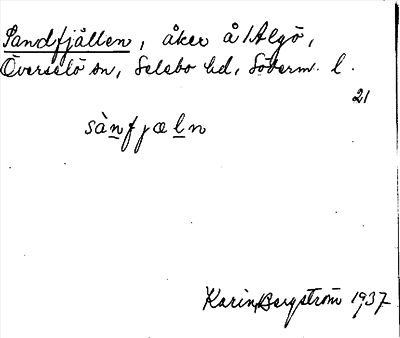 Sandfjällen, åker å Algö,
Överselö sn, Selebo hd, Söderm. l.
21
sànfjæln
Karin Bergström 1937